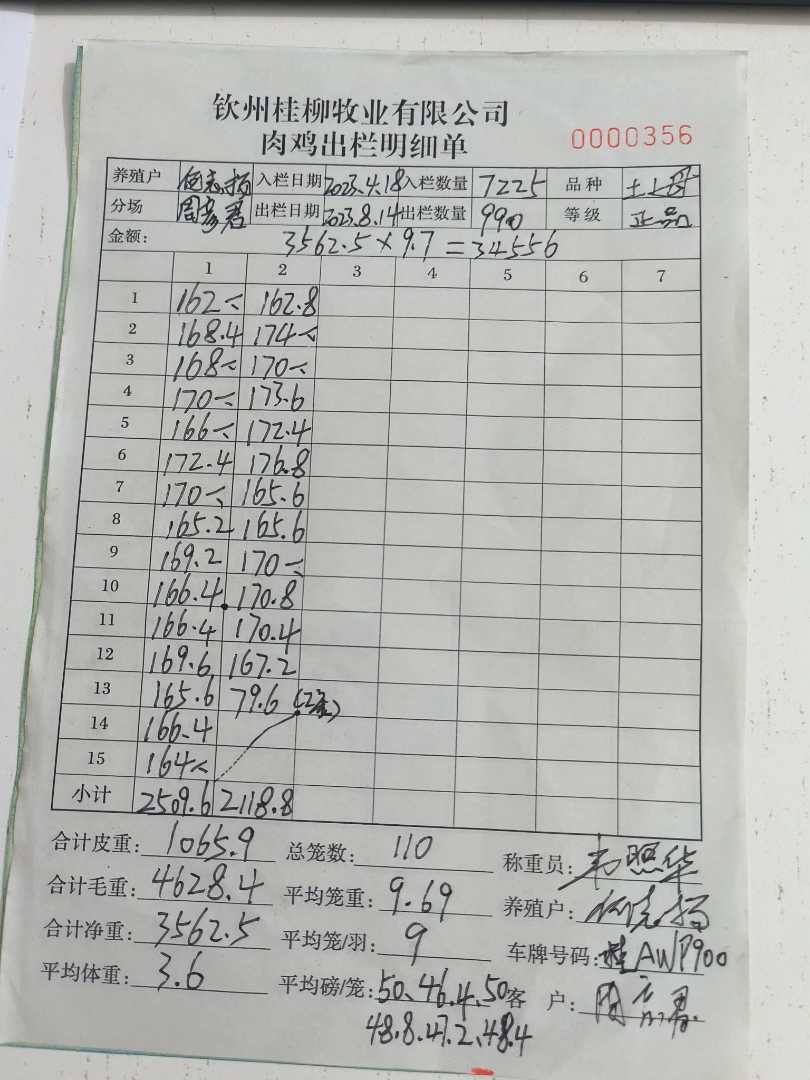 钦州桂柳牧业有限公司
肉鸡出栏明细单 0000356
养殖户 入栏日期 2023.4.18 入栏数量 7225 品种
分场 周 君 出栏日期 2023.8.14 出栏数量 990 等级 正品
金额: 3562.5×9.7=34556
1 2 3 4 5 6 7
1 162 162.8
2 168.4 174
3 168 170
4 170 173.6
5 166 172.4
6 172.4 176.8
7 170 165.6
8 165.2 165.6
9 169.2 170
10 166.4 170.8
11 166.4 170.4
12 169.6 167.2
13 165.6 79.6
14 166.4
15 164
小计 2509.6 2118.8
合计皮重: 1065.9 总笼数: 110 称重员: 韦照华
合计毛重: 4628.4 平均笼重: 9.69 养殖户:
合计净重: 3562.5 平均笼/羽: 9 车牌号码: 桂AWP900
平均体重: 3.6 平均磅/笼: 50、46.4、50 客户:
48.8、47.2、48.4